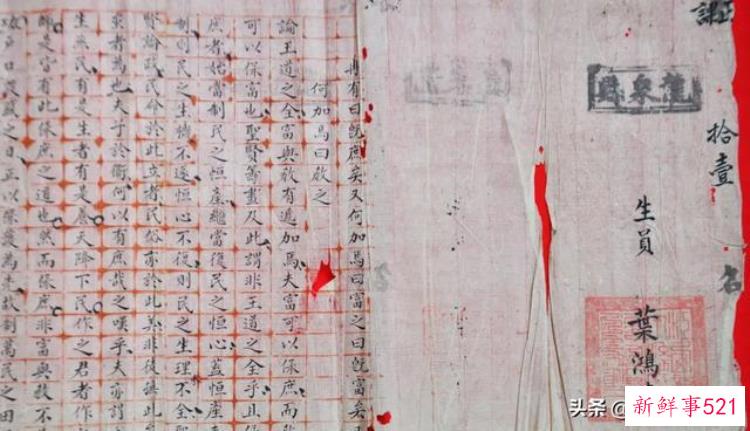 正課
拾壹
名
龍泉縣
生員 葉鴻
冉有曰既庶矣又何加焉曰富之曰既富矣又
何加焉曰教之
論王道之全富與教有遞加焉夫富可以保庶而教
可以保富也聖賢籌畫及此謂非王道之全乎且保
庶者始當制民之恒產繼當復民之恒心蓋恒產
制則民之生特不遂恒心不復則民之生理不全聖
賢論政民命於此立者民俗亦於此美非後諸此
求者為也夫子於衛何以有庶哉之嘆乎夫亦謂
生無民有是生者有是養天降下民作之君者作
師是皆有此保庶之道也然而保庶非富與教不
户口之日正以保愛為先故制萬民之田
头条 @
新鲜事521